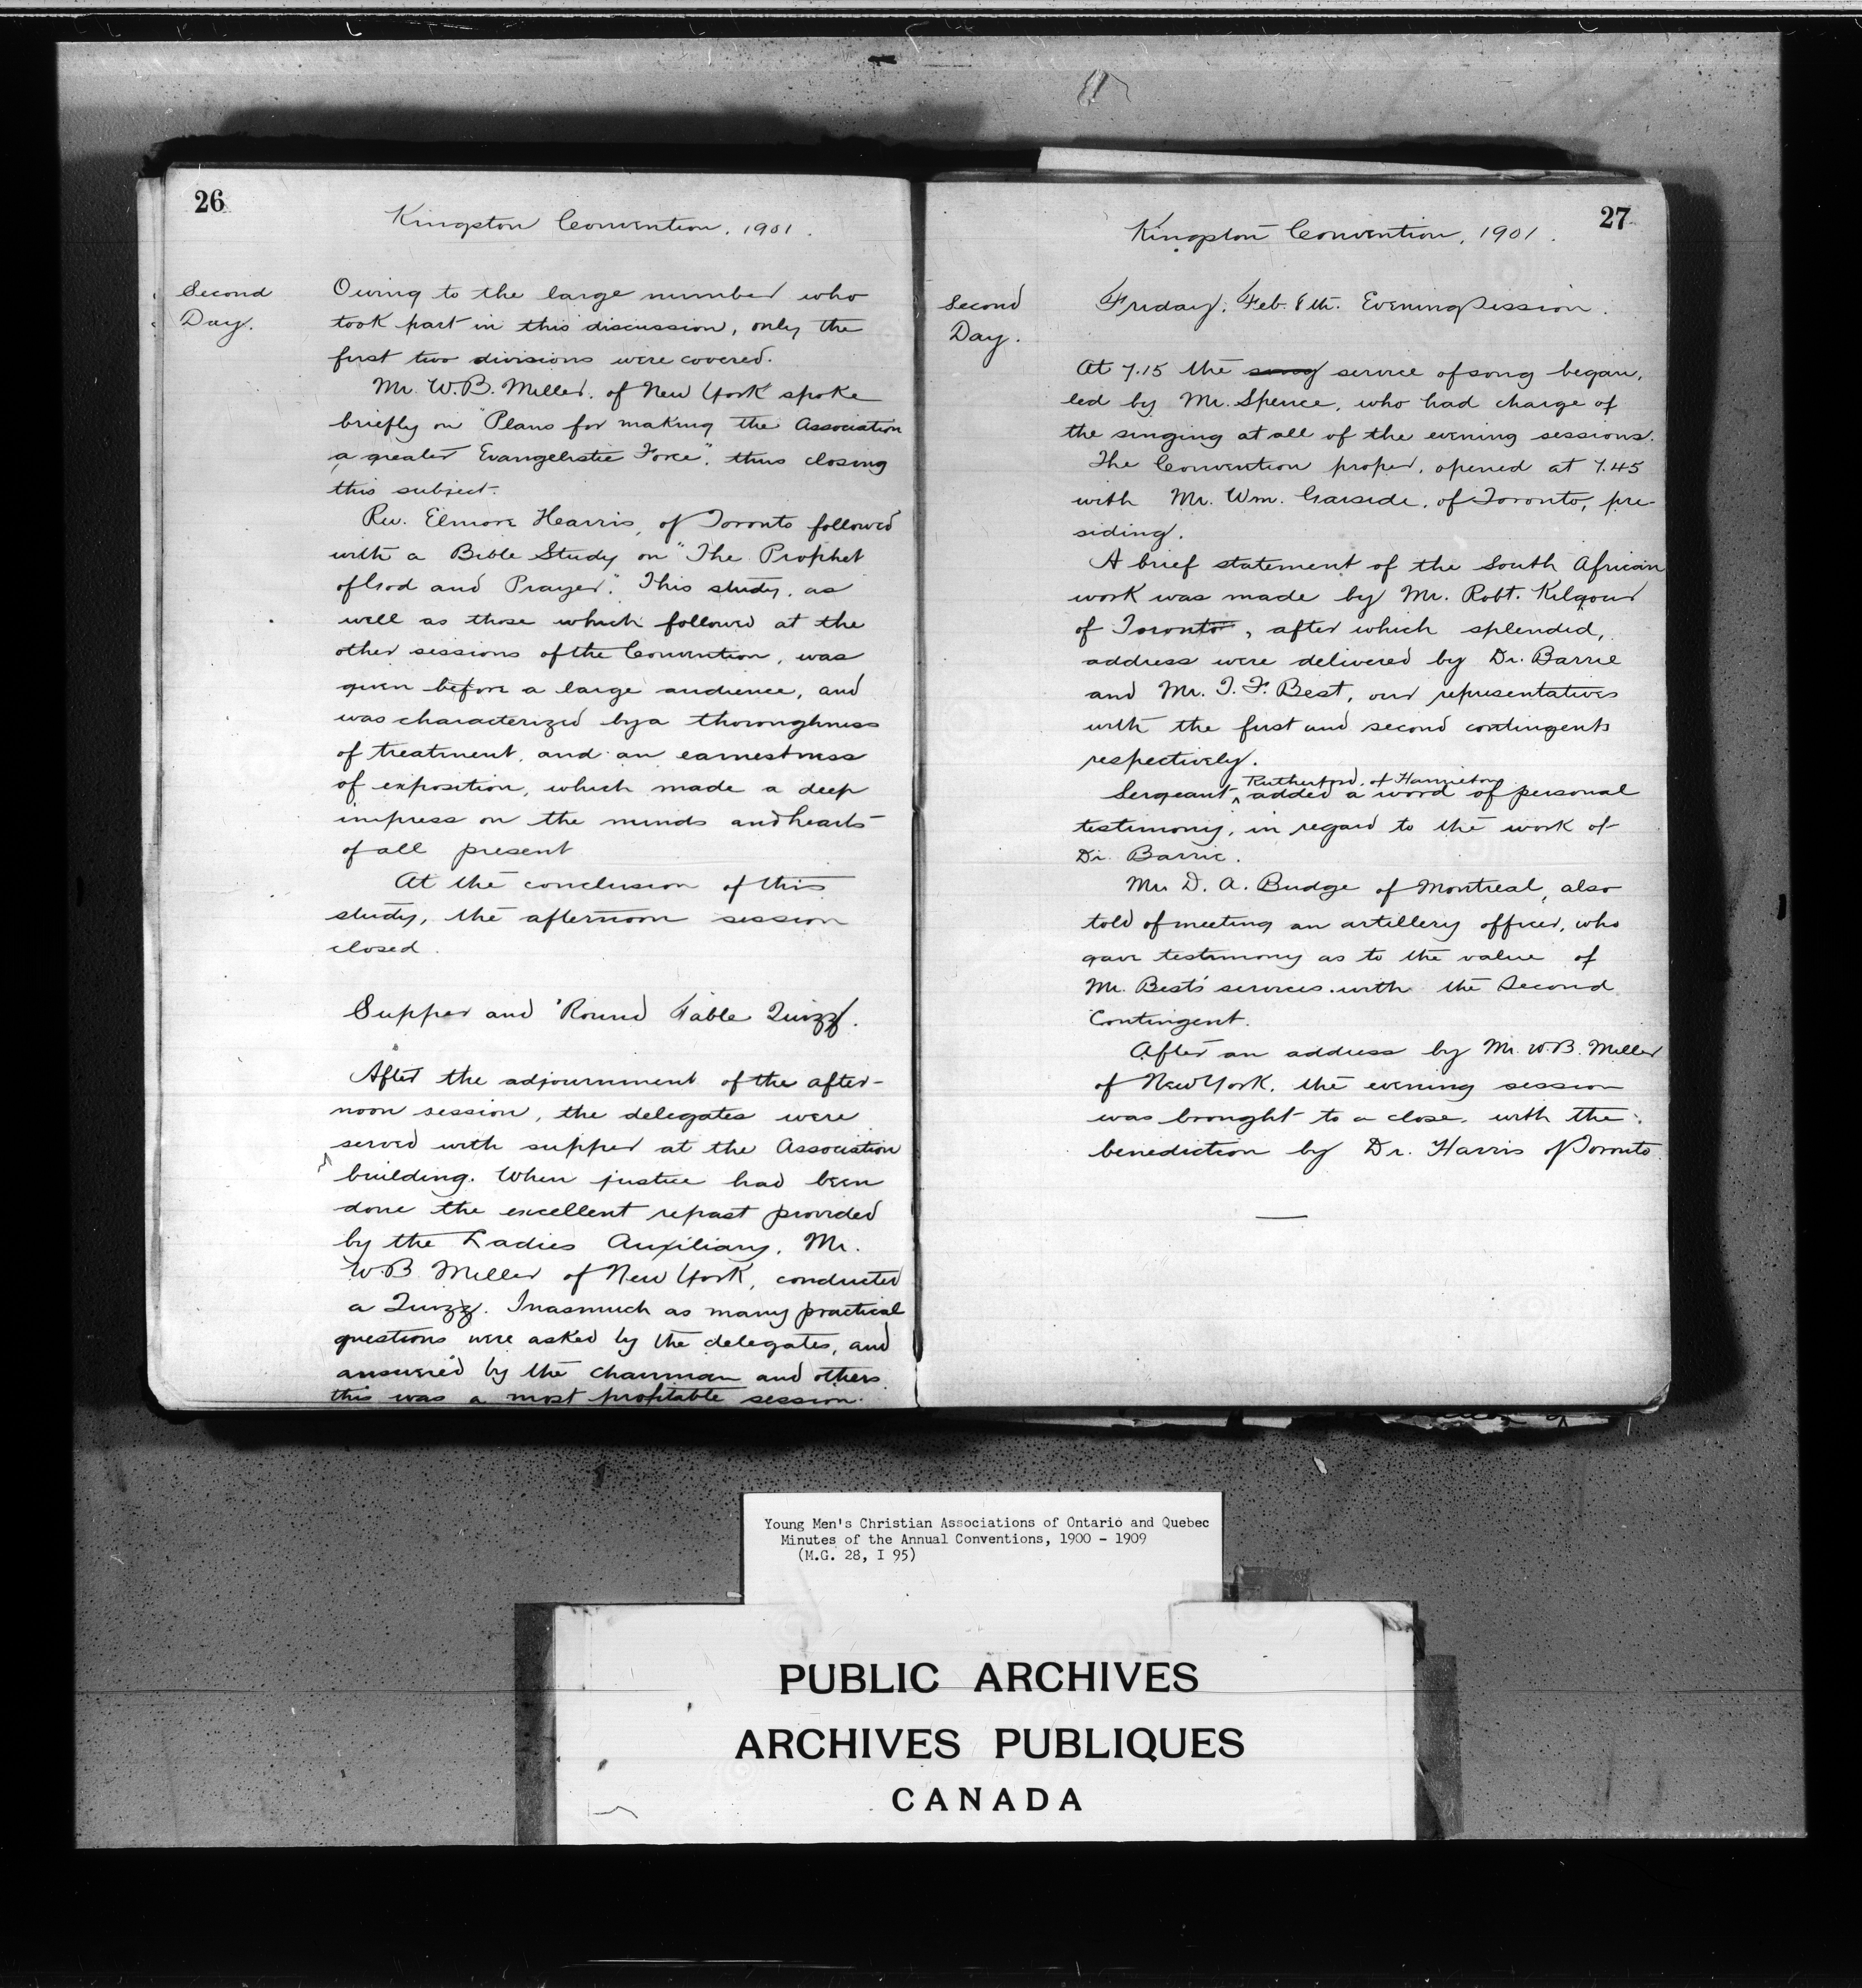 26
Kingston Convention, 1901.
Second
Day.
Owing to the large number who
took part in this discussion, only the
first two divisions were covered.
Mr. W.B. Miller, of New York spoke
briefly on "Plans for making the Association
a greater Evangelistic Force", thus closing
this subject.
Rev. Elmore Hearris, of Toronto followed
with a Bible Study on "The Prophet
of God and Prayer." This study, as
well as those which followed at the
other sessions of the Convention, was
given before a large audience, and
was characterized by a thoroughness
of treatment, and an earnestness
of exposition, which made a deep
impress on the minds and hearts
of all present
At the conclusion of this
study, the afternoon session
closed.
Supper and 'Round Table Quizz.
After the adjournment of the after-
noon session, the delegates were
served with supper at the Association
building. When justice had been
done the excellent repast provided
by the Ladies Auxiliary, Mr.
W.B Miller of New York, conducted
a Quizz. Inasmuch as many practical
questions were asked by the delegates, and
answered by the chairman and others
this was a most profitable session.
27
Kingston Convention, 1901.
Second
Day.
Friday, Feb. 8th. Evening Session.
At 7.15 the song service of song began,
led by Mr. Spence, who had charge of
the singing at all of the evening sessions.
The Convention proper, opened at 7.45
with Mr. Wm. Garside, of Toronto, pre-
siding.
A brief statement of the South African
work was made by Mr. Robt. Kilgour
of Toronto, after which splended,
address were delivered by Dr. Barrie
and Mr. T. F. Best, our representatives
with the first and second contingents
respectively.
Rutherford, of Hamilton
Sergeant ^ added a word of personal
testimony, in regard to the work of
Dr. Barrie.
Mr. D. A. Budge of Montreal, also
told of meeting an artillery officer, who
gave testimony as to the value of
Mr. Best's services with the Second
Contingent.
After an address by Mr. W.B. Miller
of New York, the evening session
was brought to a close, with the
benediction by Dr. Harris of Toronto
Young Men's Christian Associations of Ontario and Quebec
Minutes of the Annual Conventions, 1900 - 1909
(M.G. 28, I 95)
PUBLIC ARCHIVES
ARCHIVES PUBLIQUES
CANADA